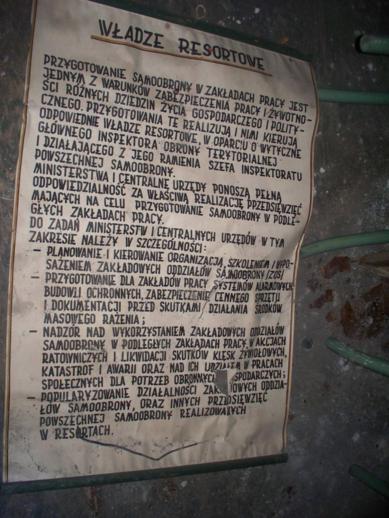 WŁADZE RESORTOWE
PRZYGOTOWANIE SAMOOBRONY W ZAKŁADACH PRACY JEST
JEDNYM Z WARUNKÓW ZABEZPIECZENIA PRACY I ŻYWOTNO-
ŚCI RÓŻNYCH DZIEDZIN ŻYCIA GOSPODARCZEGO I POLITY-
CZNEGO. PRZYGOTOWANIA TE REALIZUJĄ I NIMI KIERUJĄ
ODPOWIEDNIE WŁADZE RESORTOWE, W OPARCIU O WYTYCZNE
GŁÓWNEGO INSPEKTORA OBRONY TERYTORIALNEJ
I DZIAŁAJĄCEGO Z JEGO RAMIENIA SZEFA INSPEKTORATU
POWSZECHNEJ SAMOOBRONY.
MINISTERSTWA I CENTRALNE URZĘDY PONOSZĄ PEŁNĄ
ODPOWIEDZIALNOŚĆ ZA WŁAŚCIWĄ REALIZACJĘ PRZEDSIĘWZIĘĆ
MAJĄCYCH NA CELU PRZYGOTOWANIE SAMOOBRONY W PODLE-
GŁYCH ZAKŁADACH PRACY.
DO ZADAŃ MINISTERSTW I CENTRALNYCH URZĘDÓW W TYM
ZAKRESIE NALEŻY W SZCZEGÓLNOŚCI:
– PLANOWANIE I KIEROWANIE ORGANIZACJĄ, SZKOLENIEM I WYPO-
SAŻENIEM ZAKŁADOWYCH ODDZIAŁÓW SAMOOBRONY /ZOS/
– PRZYGOTOWANIE DLA ZAKŁADÓW PRACY SYSTEMÓW ALARMOWYCH
BUDOWLI OCHRONNYCH, ZABEZPIECZENIE CENNEGO SPRZĘTU
I DOKUMENTACJI PRZED SKUTKAMI DZIAŁANIA ŚRODKÓW
MASOWEGO RAŻENIA;
– NADZÓR NAD WYKORZYSTANIEM ZAKŁADOWYCH ODDZIAŁÓW
SAMOOBRONY W PODLEGŁYCH ZAKŁADACH PRACY, W AKCJACH
RATOWNICZYCH I LIKWIDACJI SKUTKÓW KLĘSK ŻYWIOŁOWYCH,
KATASTROF I AWARII ORAZ NAD ICH UDZIAŁEM W PRACACH
SPOŁECZNYCH DLA POTRZEB OBRONNYCH SPODARCZYCH;
– POPULARYZOWANIE DZIAŁALNOŚCI ZAKŁADOWYCH ODDZIA-
ŁÓW SAMOOBRONY, ORAZ INNYCH PRZEDSIĘWZIĘĆ
POWSZECHNEJ SAMOOBRONY REALIZOWANYCH
W RESORTACH.